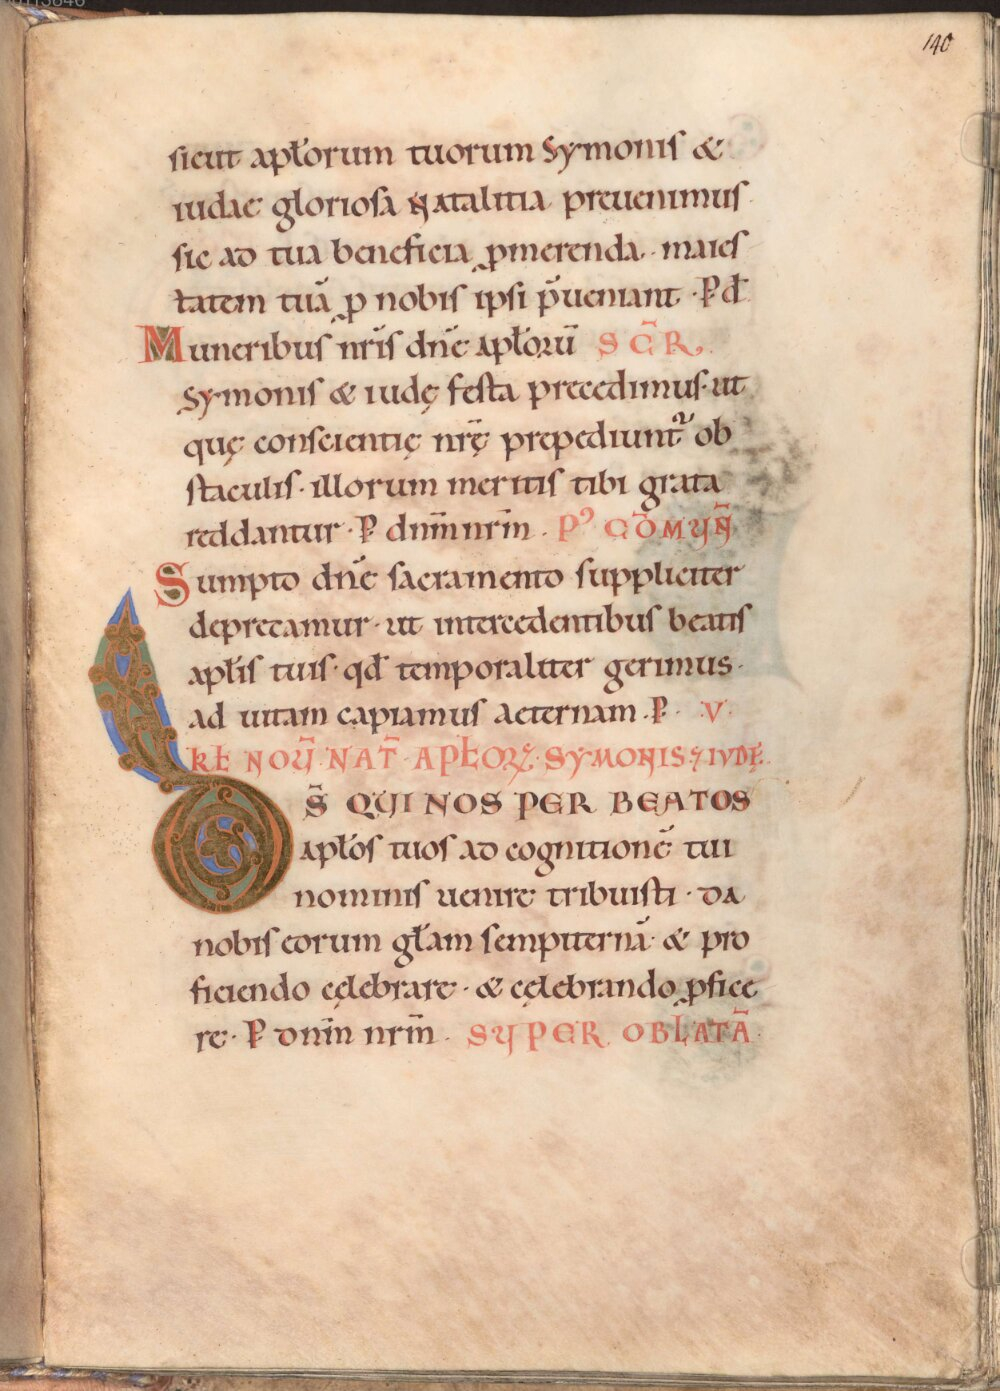 140
sicut apłorum tuorum Symonis &
iudae gloriosa Natalitia preuenimus
sic ad tua beneficia ꝓmerenda · maies
tatem tuā ꝓ nobis ipsi p̄ueniant · P d̄
Muneribus nr̄is dn̄e apłorū SC̄R
Symonis & iudę festa precedimus · ut
quę conscientię nr̄ę prepediunt᷑ ob
staculis · illorum meritis tibi grata
reddantur · P dnm̄ nrm̄ · Pꝰ COM̄UN̄
Sumpto dn̄e sacramento suppliciter
deprecamur · ut intercedentibus beatis
apłis tuis · qđ temporaliter gerimus ·
ad uitam capiamus aeternam · P · V ·
KŁ NOŪ NAT̄ APŁOꝜ SYMONIS ⁊ IVDĘ
D S̄ QUI NOS PER BEATOS
apłos tuos ad cognitionē tui
nominis uenire tribuisti · da
nobis eorum głam sempiternā · & pro
ficiendo cęlebrare · & cęlebrando ꝓfice
re · P dnm̄ nrm̄ · SUPER OBLATĀ ·